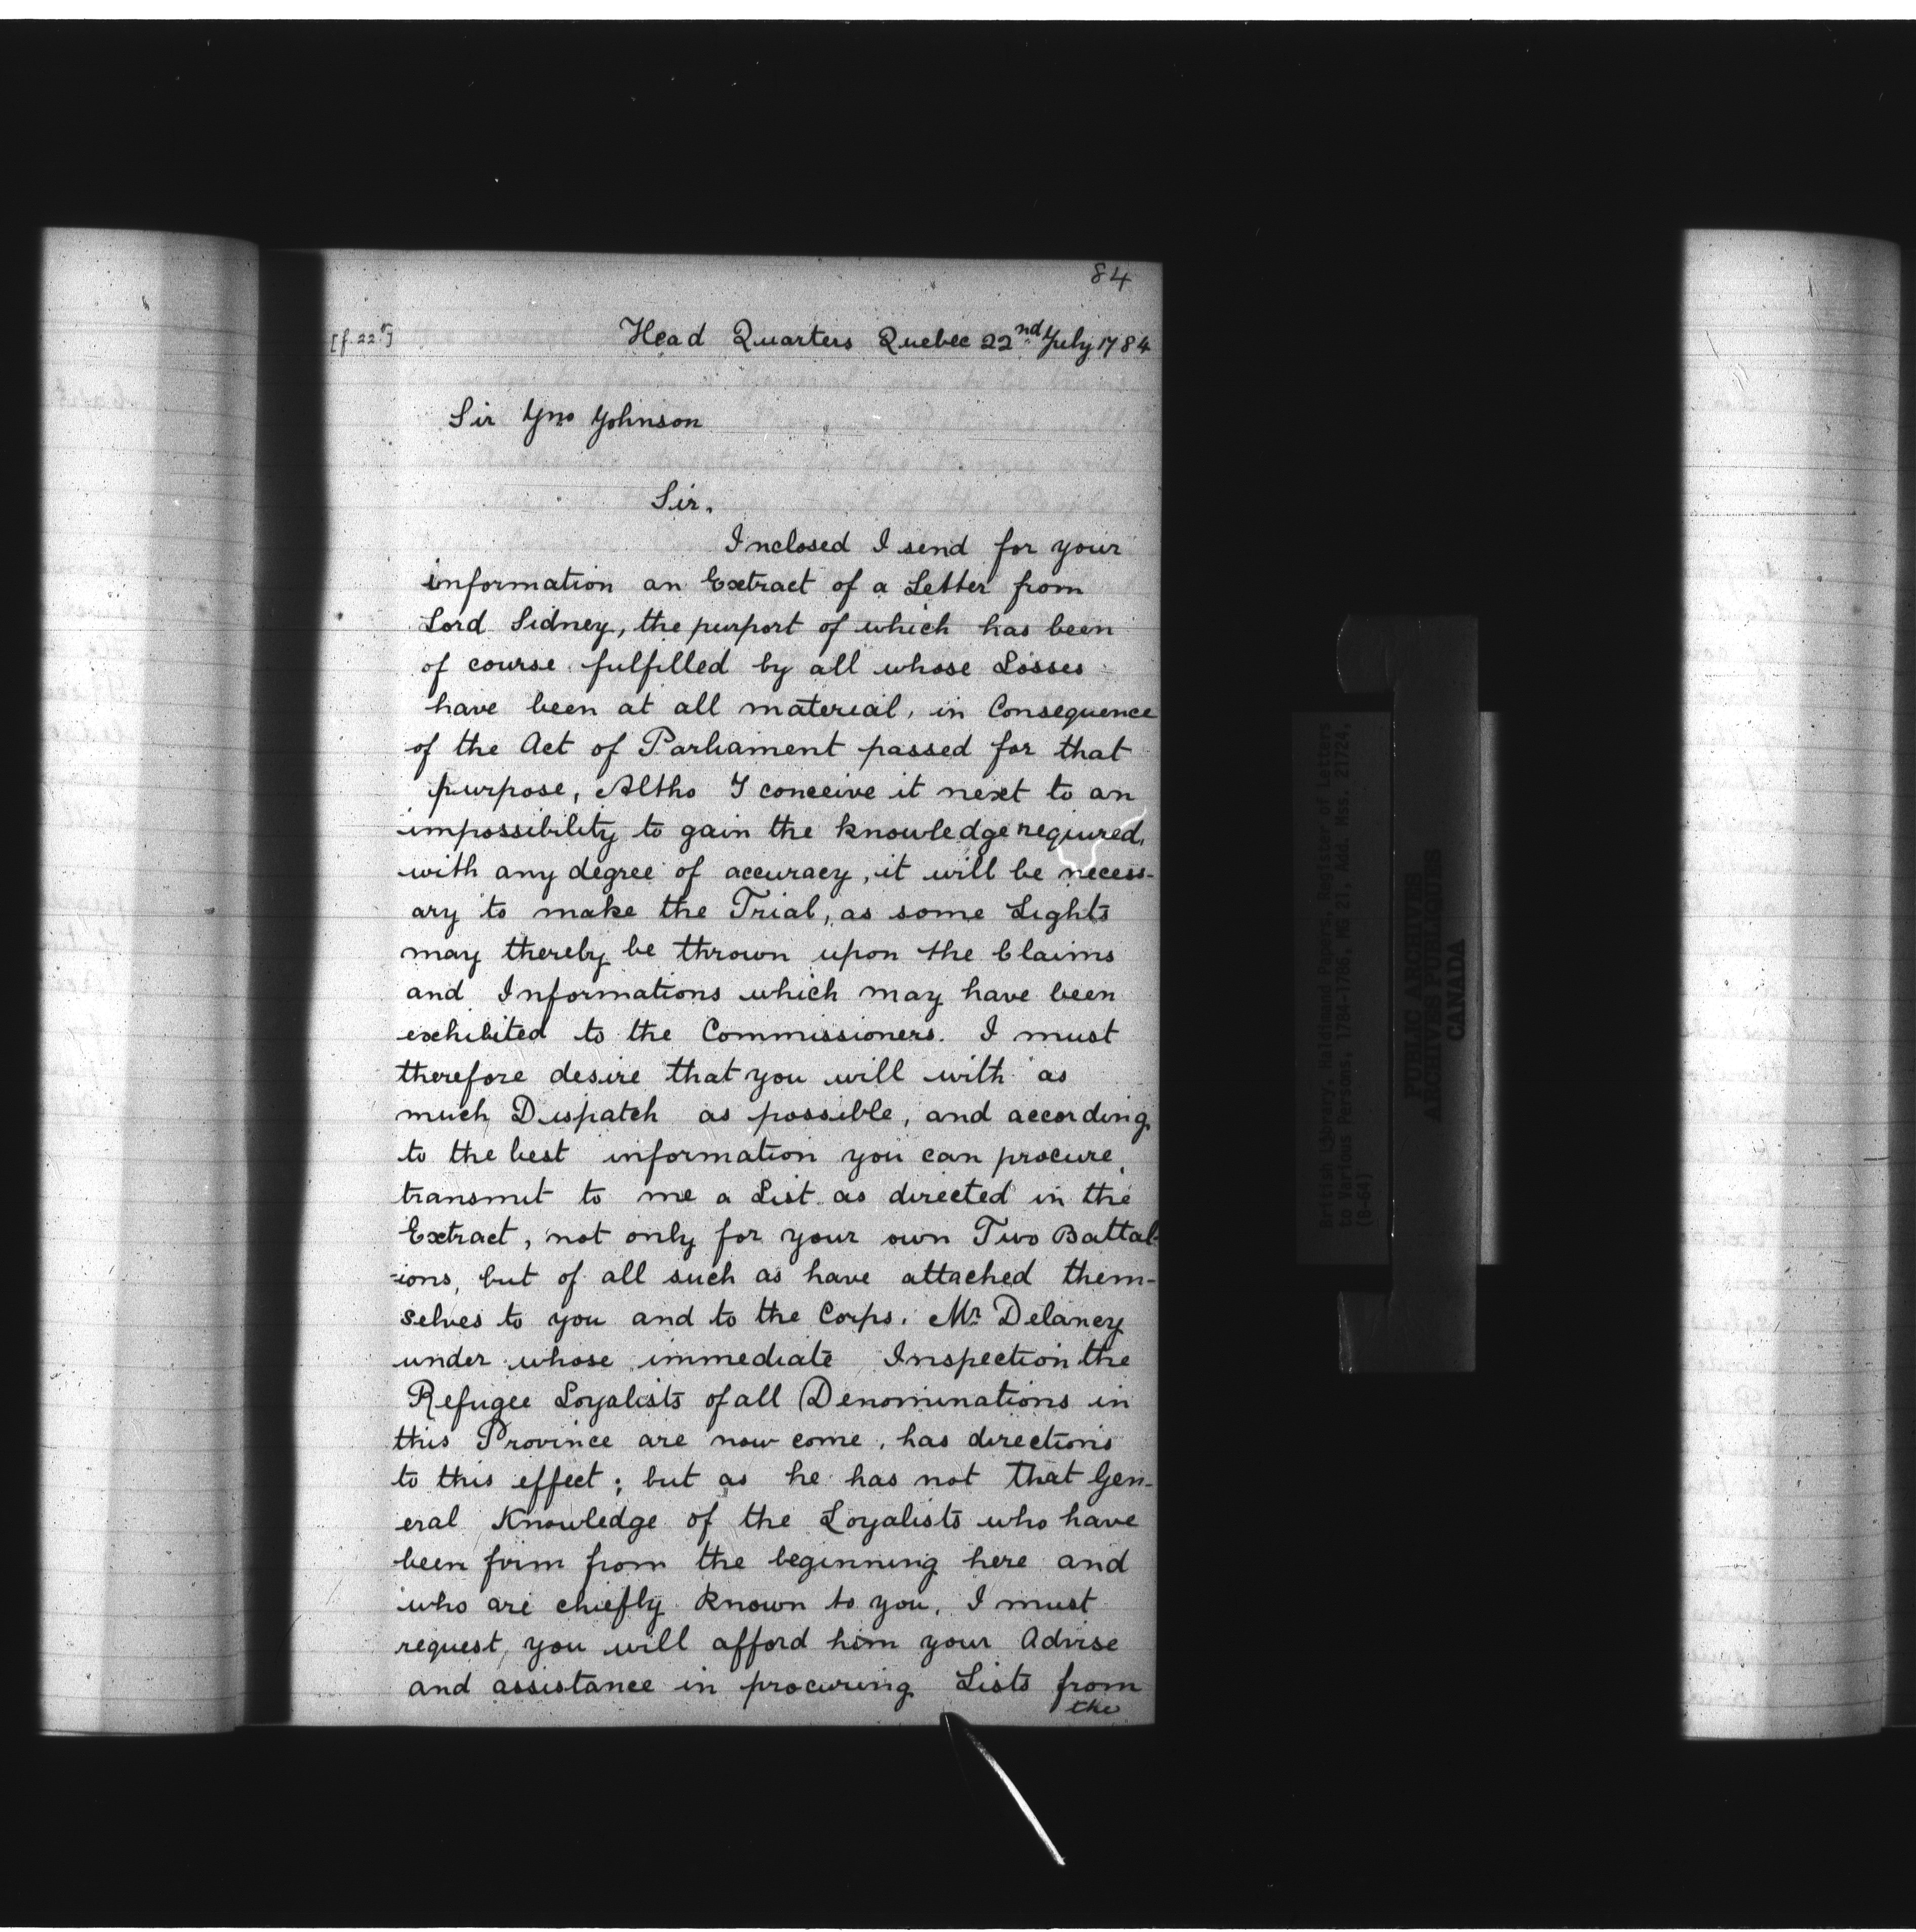 84
[f. 22r]
Head Quarters Quebec 22nd July 1784
Sir Jno Johnson
Sir,
Inclosed I send for your
information an Extract of a Letter from
Lord Sidney, the purport of which has been
of course fulfilled by all whose Losses
have been at all material, in Consequence
of the Act of Parliament passed for that
purpose, Altho I conceive it next to an
impossibility to gain the knowledge required,
with any degree of accuracy, it will be necess-
ary to make the Trial, as some Lights
may thereby be thrown upon the Claims
and Informations which may have been
exhibited to the Commissioners. I must
therefore desire that you will with as
much Dispatch as possible, and according
to the best information you can procure,
transmit to me a List as directed in the
Extract, not only for your own Two Battal-
-ions, but of all such as have attached them-
selves to you and to the Corps. Mr Delancy
under whose immediate Inspection the
Refugee Loyalists of all Denominations in
this Province are now come, has directions
to this effect; but as he has not that Gen-
eral Knowledge of the Loyalists who have
been firm from the beginning here and
who are chiefly known to you, I must
request, you will afford him your Advise
and assistance in procuring Lists from
the
British Library, Haldimand Papers Register of Letters
to Various Persons, 1784-1786, MG 21, Add. Mss. 21724,
(B-64)
PUBLIC ARCHIVES
ARCHIVES PUBLIQUES
CANADA